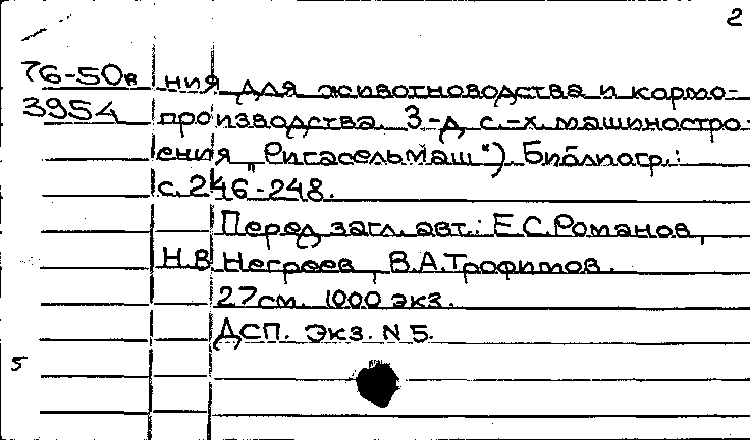 2
76-50в ния для животноводства и кормо-
3954 производства. З-д с.-х. машиностро-
ения "Ригасельмаш"). Библиогр.:
с. 246-248.
Перед загл. авт.: Е.С.Романов,
Н.В Негреев, В.А.Трофимов.
27см. 1000 экз.
ДСП. Экз. N 5.
5